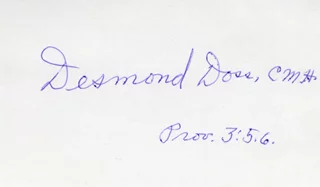 Desmond Doss, CMH.
Prov. 3:5.6.